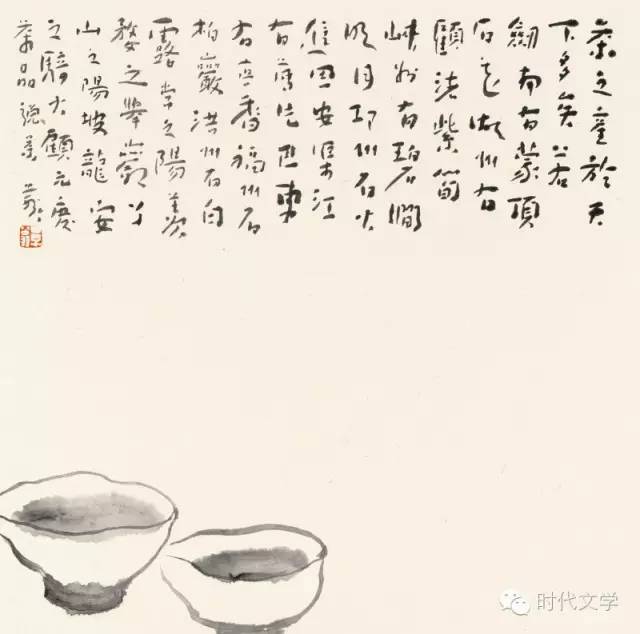 茶之產於天
下多矣若
劍南有蒙頂
石花湖州有
顧渚紫筍
峽州有碧澗
明月邛州有火
井思安渠江
有薄片巴東
有真香福州有
柏巖洪州有白
露常之陽羨
婺之舉巖丫
山之陽坡龍安
之騎火顧元慶
茶品
时代文学